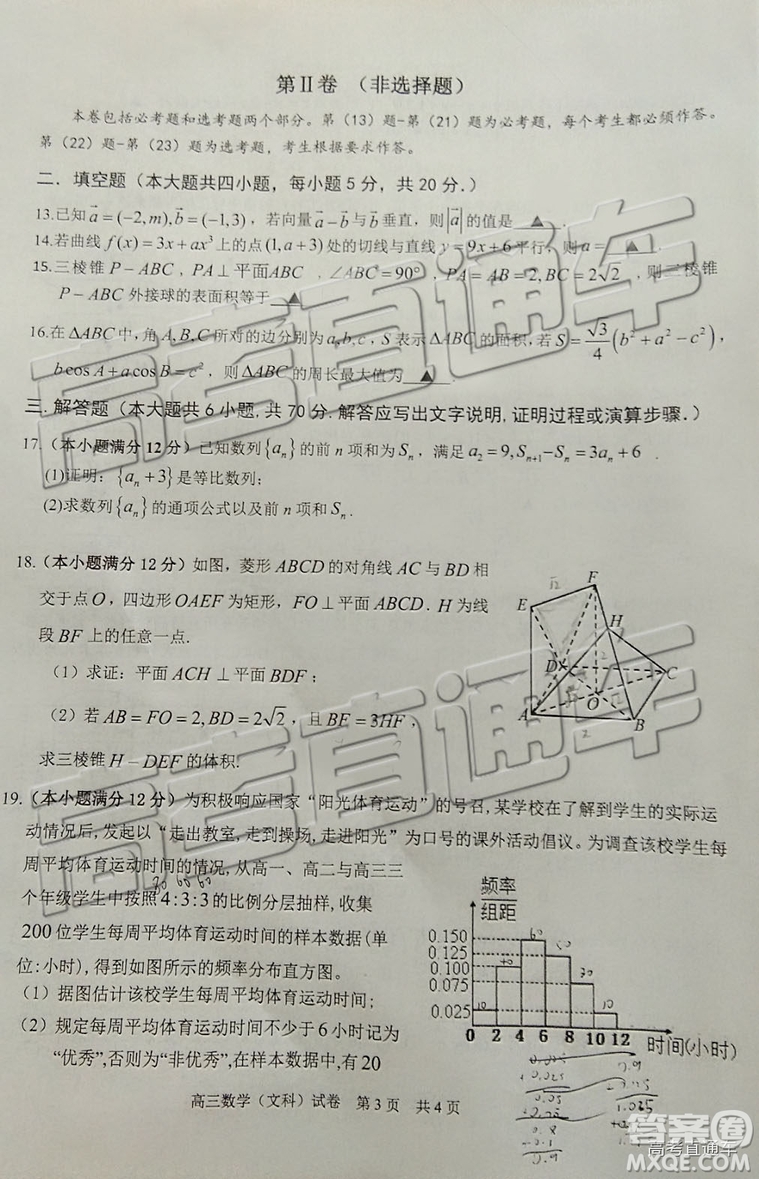 第Ⅱ卷 （非选择题）
本卷包括必考题和选考题两个部分。第（13）题-第（21）题为必考题，每个考生都必须作答。
第（22）题-第（23）题为选考题，考生根据要求作答。
二．填空题（本大题共四小题，每小题5分，共20分.）
13.已知a⃗=(−2,m),b⃗=(−1,3)，若向量a⃗−b⃗与b⃗垂直，则|a⃗|的值是 ▲ .
14.若曲线f(x)=3x+ax³上的点(1,a+3)处的切线与直线y=9x+6平行，则a= ▲ .
15.三棱锥P−ABC，PA⊥平面ABC,∠ABC=90°，PA=AB=2,BC=2√2，则三棱锥
P−ABC外接球的表面积等于 ▲
16.在ΔABC中，角A,B,C所对的边分别为a,b,c，S表示ΔABC的面积,若S=√3/4(b²+a²−c²)，
bcosA+acosB=c²，则ΔABC的周长最大值为 ▲ .
三.解答题（本大题共6小题,共70分.解答应写出文字说明,证明过程或演算步骤.）
17.（本小题满分12分）已知数列{aₙ}的前n项和为Sₙ，满足a₂=9,Sₙ₊₁−Sₙ=3aₙ+6．
(1)证明：{aₙ+3}是等比数列;
(2)求数列{aₙ}的通项公式以及前n项和Sₙ.
18.（本小题满分12分）如图，菱形ABCD的对角线AC与BD相
交于点O，四边形OAEF为矩形，FO⊥平面ABCD. H为线
段BF上的任意一点.
（1）求证：平面ACH⊥平面BDF；
（2）若AB=FO=2,BD=2√2，且BF=3HF，
求三棱锥H−DEF的体积.
F
E
H
D
C
O
A
B
2
19.（本小题满分12分）为积极响应国家“阳光体育运动”的号召,某学校在了解到学生的实际运
动情况后,发起以“走出教室,走到操场,走进阳光”为口号的课外活动倡议。为调查该校学生每
周平均体育运动时间的情况,从高一、高二与高三三
80 60 60
个年级学生中按照4:3:3的比例分层抽样,收集
200位学生每周平均体育运动时间的样本数据(单
位:小时),得到如图所示的频率分布直方图。
（1）据图估计该校学生每周平均体育运动时间;
（2）规定每周平均体育运动时间不少于6小时记为
“优秀”,否则为“非优秀”,在样本数据中,有20
频率
组距
0.150
0.125
0.100
0.075
0.025
10
40
60
30
10
0 2 4 6 8 10 12 时间(小时)
高三数学（文科）试卷 第3页 共4页
答案圈
高考直通车
MXQE.COM
高考直通车
高考直通车